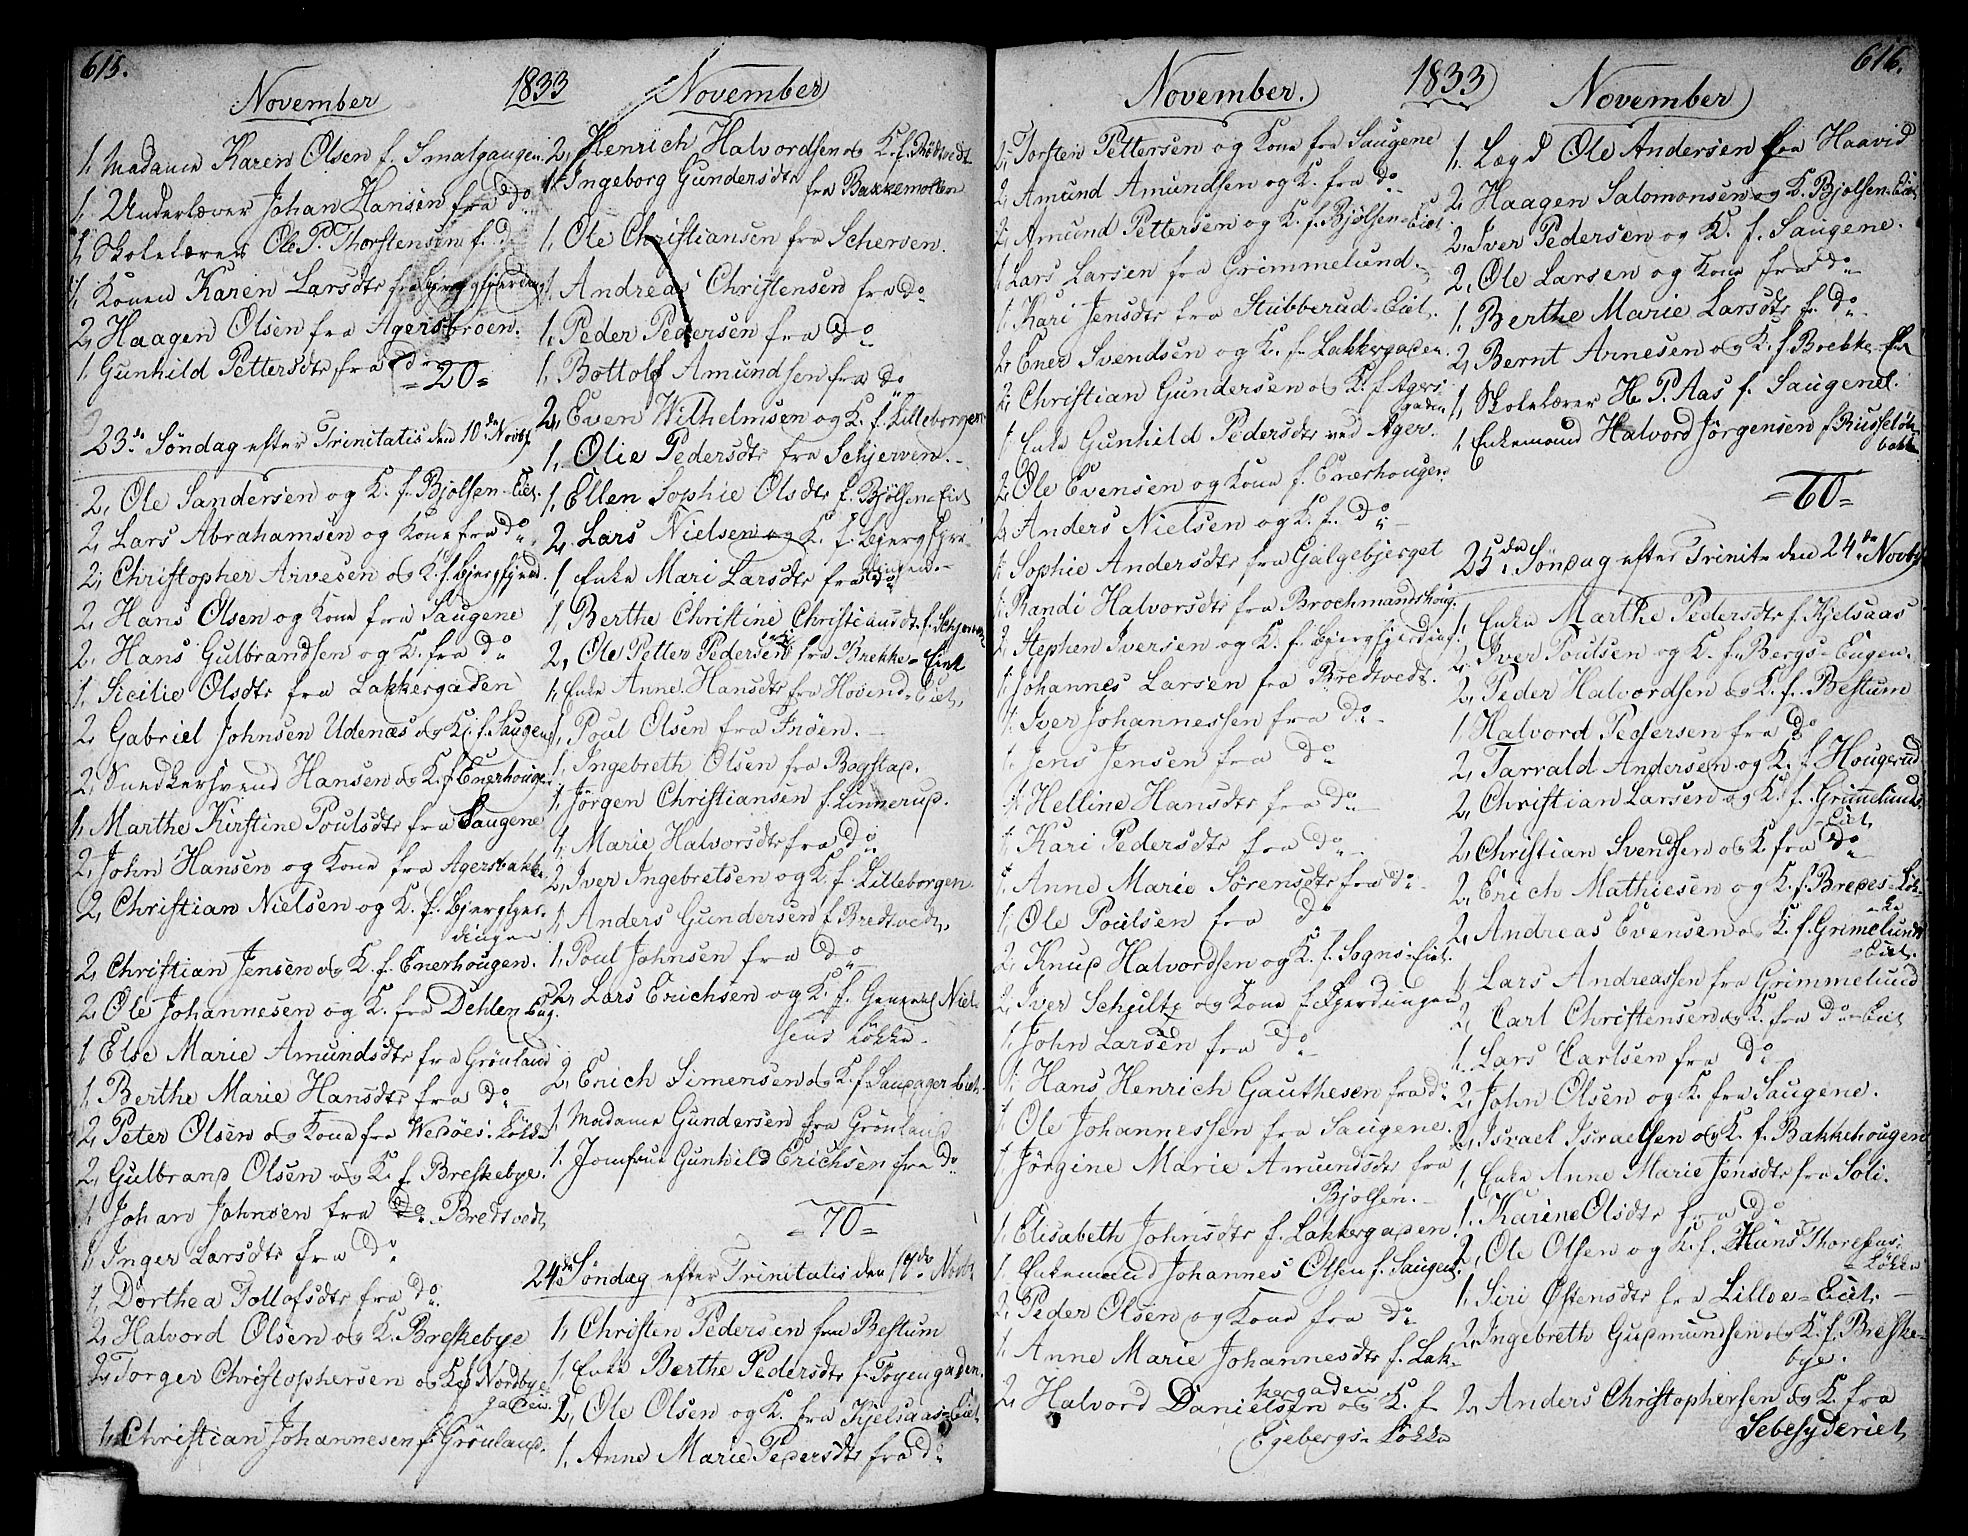 615.
1833
November
1, Madame Karen Olsen f. Smalgangen.
1, Underlærer Johan Hansen fra do
1, Skolelærer Ole P. Thorstensen f. do
1, Konen Karen Larsdtr fra Bjergfjerding
2, Haagen Olsen fra Agersbroen.
1 Gunhild Pettersdtr fra do
=20=
23de Søndag efter Trinitatis den 10de Novbr
2, Ole Sandersen og K. f. Bjølsen=Eiet.
2, Lars Abrahamsen og Kone fra do
2, Christopher Arvesen og K. f. Bjergfjerd.
2, Hans Olsen og Kone fra Saugene
2, Hans Gulbrandsen og K. fra do
1, Sicilie Olsdtr fra Lakkergaden
2, Gabriel Johnsen Udenæs og K. f. Saugene
2, Snedkersvend Hansen og K. f. Enerhougen
1, Marthe Kirstine Poulsdtr fra Saugene
2, John Hansen og Kone fra Agersbakke
2, Christian Nielsen og K. f. Bjergfjer-
dingen
2, Christian Jensen og K. f. Enerhougen.
2, Ole Johannesen og K. fra Dehlen Eug.
1 Else Marie Amundsdtr fra Grønland
1, Berthe Marie Hansdtr fra do
2, Peter Olsen og Kone fra Wedøes Løkke
2, Gulbrand Olsen og K. f. Breskebye.
1, Johan Johnsen fra do Bredtvedt
1, Inger Larsdtr fra do
1, Dorthea Tollofsdtr fra do
2, Halvord Olsen og K. Breskebye
2, Torger Christophersen og K. f. Nordbye
gaden.
1, Christian Johannesen f. Grønland.
November
2, Henrich Halvordsen og K. f. Rødtvedt
1, Ingeborg Gundersdtr fra Bakkemoten
1, Ole Christiansen fra Scherven.
1, Andreas Christensen fra do
1, Peder Pedersen fra do
1, Bottolf Amundsen fra do
2, Even Wilhelmsen og K. f. Lilleborgen
1, Olie Pedersdtr fra Schjerven.
1, Ellen Sophie Olsdtr f. Bjølsen=Eiet
2, Lars Nielsen og K. f. Bjergfjer-
dingen
1, Enke Mari Larsdtr fra do
1, Berthe Christine Christiansdtr f. Schjerven
2, Ole Petter Pedersen og K. fra Brekke=Eiet
1, Enke Anne Hansdtr fra Hovind=Eiet,
1, Poul Olsen fra Frøen.
1, Ingebreth Olsen fra Bogstad.
1, Jørgen Christiansen f. Linnerud.
1, Marie Halvorsdtr fra do
2, Iver Ingebretsen og K. f. Lilleborgen
1, Anders Gundersen f. Bredtvedt,
1, Poul Johnsen fra do
2, Lars Erichsen og K. f. General Niel-
sens Løkke
2, Erich Simensen og K. f. Laudager=Eiet,
1, Madame Gundersen fra Grønland
1, Jomfrue Gunhild Erichsen fra do
=70=
24de Søndag efter Trinitatis den 17de Novbr
1, Christen Pedersen fra Bestum
1, Enke Berthe Pedersdtr f. Tøyengaden.
2, Ole Olsen og K. fra Kjelsaas=Eiet
1, Anne Marie Pedersdtr fra do
616.
1833
November.
2, Torsten Pettersen og Kone fra Saugene
2, Amund Amundsen og K. fra do
2, Amund Pettersen og K. f. Bjølsen=Eiet
1 Lars Larsen fra Grimmelund.
1, Kari Jensdtr fra Stubberud=Eiet.
2, Ener Svendsen og K. f. Lakkergaden.
2, Christian Gundersen og K. f. Agers-
gaden
1 Enke Gunhild Pedersdtr ved Ager.
2, Ole Evensen og Kone f. Enerhougen
2, Anders Nielsen og K. f. do
1, Sophie Andersdtr fra Galgebjerget
1, Randi Halvorsdtr fra Brochmandshoug.
2, Stephen Iversen og K. f. Bjergfjerding.
1, Johannes Larsen fra Bredtvedt.
1, Iver Johannessen fra do
1, Jens Jensen fra do
1, Helline Hansdtr fra do
1, Kari Pedersdtr fra do
1, Anne Marie Sørensdtr fra do
1, Ole Poulsen fra do
2, Knud Halvordsen og K. f. Sogns=Eiet.
2, Iver Schultz og Kone f. Fjerdingen
1, John Larsen fra do
1, Hans Henrich Gauthesen fra do
1, Ole Johannessen fra Saugene.
1, Jørgine Marie Amundsdtr fra
Bjølsen.
1, Elisabeth Johnsdtr f. Lakkergaden
1, Enkemand Johannes Olsen f. Saugen.
2, Peder Olsen og Kone fra do
1, Anne Marie Johannesdtr f. Lak-
kergaden
2, Halvord Danielsen og K. f.
Egebergs=Løkke
November
1, Lægd Ole Andersen fra Haavid
2, Haagen Salomonsen og K. Bjølsen=Eiet
2, Iver Pedersen og K. f. Saugene.
2, Ole Larsen og Kone fra do
1, Berthe Marie Larsdtr f. do
2, Bernt Arnesen og K. f. Brekke=Eie
1, Skolelærer H. P. Aas f. Saugene.
1, Enkemand Halvord Jørgensen f. Russeløk-
bakk
=60=
25de Søndag efter Trinit= den 24de Novbr
1, Enke Marthe Pedersdtr f. Kjelsaas
2, Iver Poulsen og K. f. Bergs=Eugen.
2, Peder Halvordsen og K. f. Bestum
1 Halvord Pedersen fra do
2, Tarrald Andersen og K. f. Hougerud
2, Christian Larsen og K. f. Grimmelunds
=Eiet
2, Christian Svendsen og K fra do
2, Erich Mathiesen og K. f. Bredes=Løk-
ke
2, Andreas Evensen og K. f. Grimelunds
=Eiet.
1, Lars Andreassen fra Grimmelund
2, Carl Christensen og K. fra do=Eiet
1, Lars Carlsen fra do
2, John Olsen og K. fra Saugene.
2, Israel Israelsen og K. f. Bakkehougen
1, Enke Anne Marie Jensdtr fra Soli.
1, Karine Olsdtr fra do
2, Ole Olsen og K. f. Hans Thoresens
=Løkke
1, Siri Østensdtr fra Lilloe=Eiet,
2, Ingebreth Gudmundsen og K. f. Breske-
bye.
2, Anders Christophersen og K. fra
Sebesyderiet